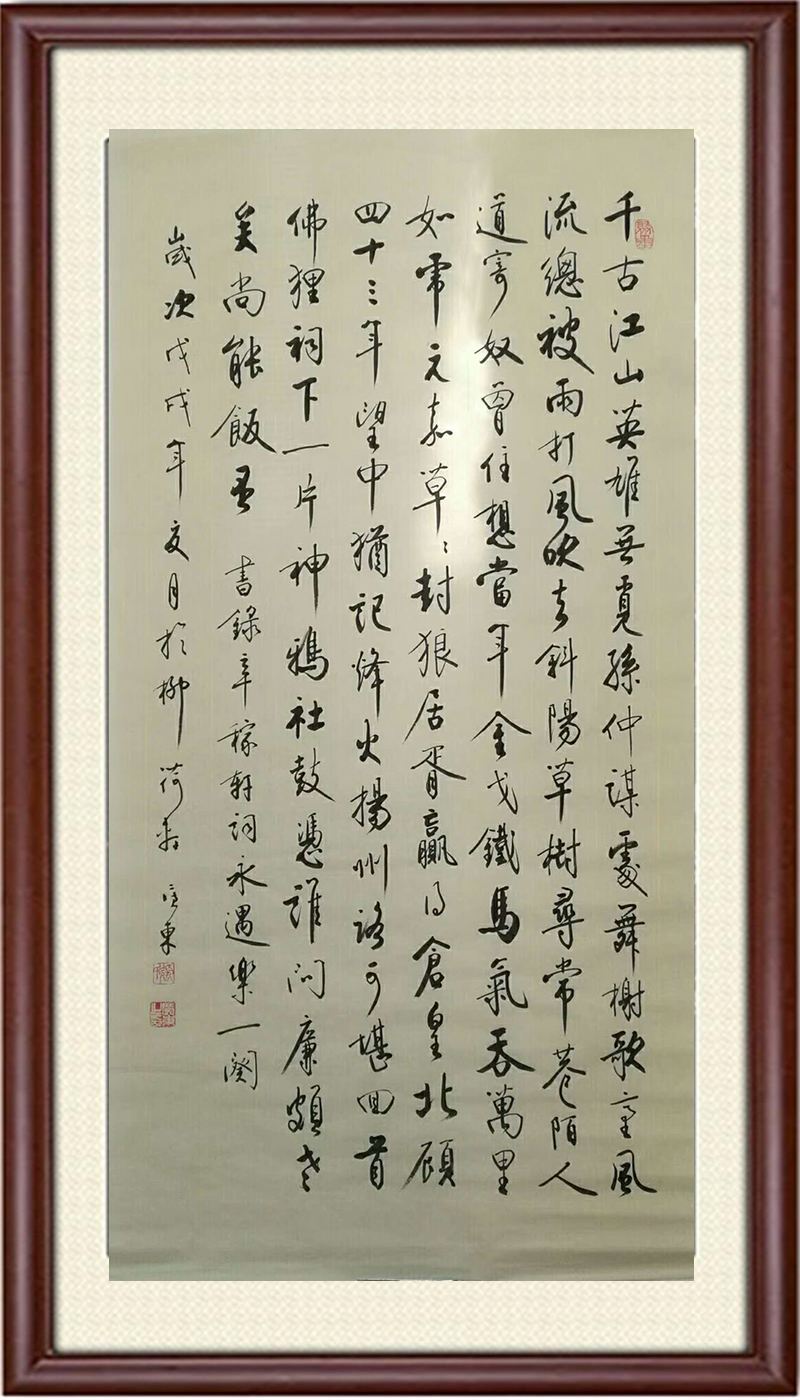 千古江山英雄無覓孫仲謀處舞榭歌臺風
流總被雨打風吹去斜陽草樹尋常巷陌人
道寄奴曾住想當年金戈鐵馬氣吞萬里
如虎元嘉草〻封狼居胥贏得倉皇北顧
四十三年望中猶記烽火揚州路可堪回首
佛狸祠下一片神鴉社鼓憑誰問廉頗老
矣尚能飯否 書錄辛稼軒詞永遇樂一闋
歲次戊戌年夏月於柳荷 東